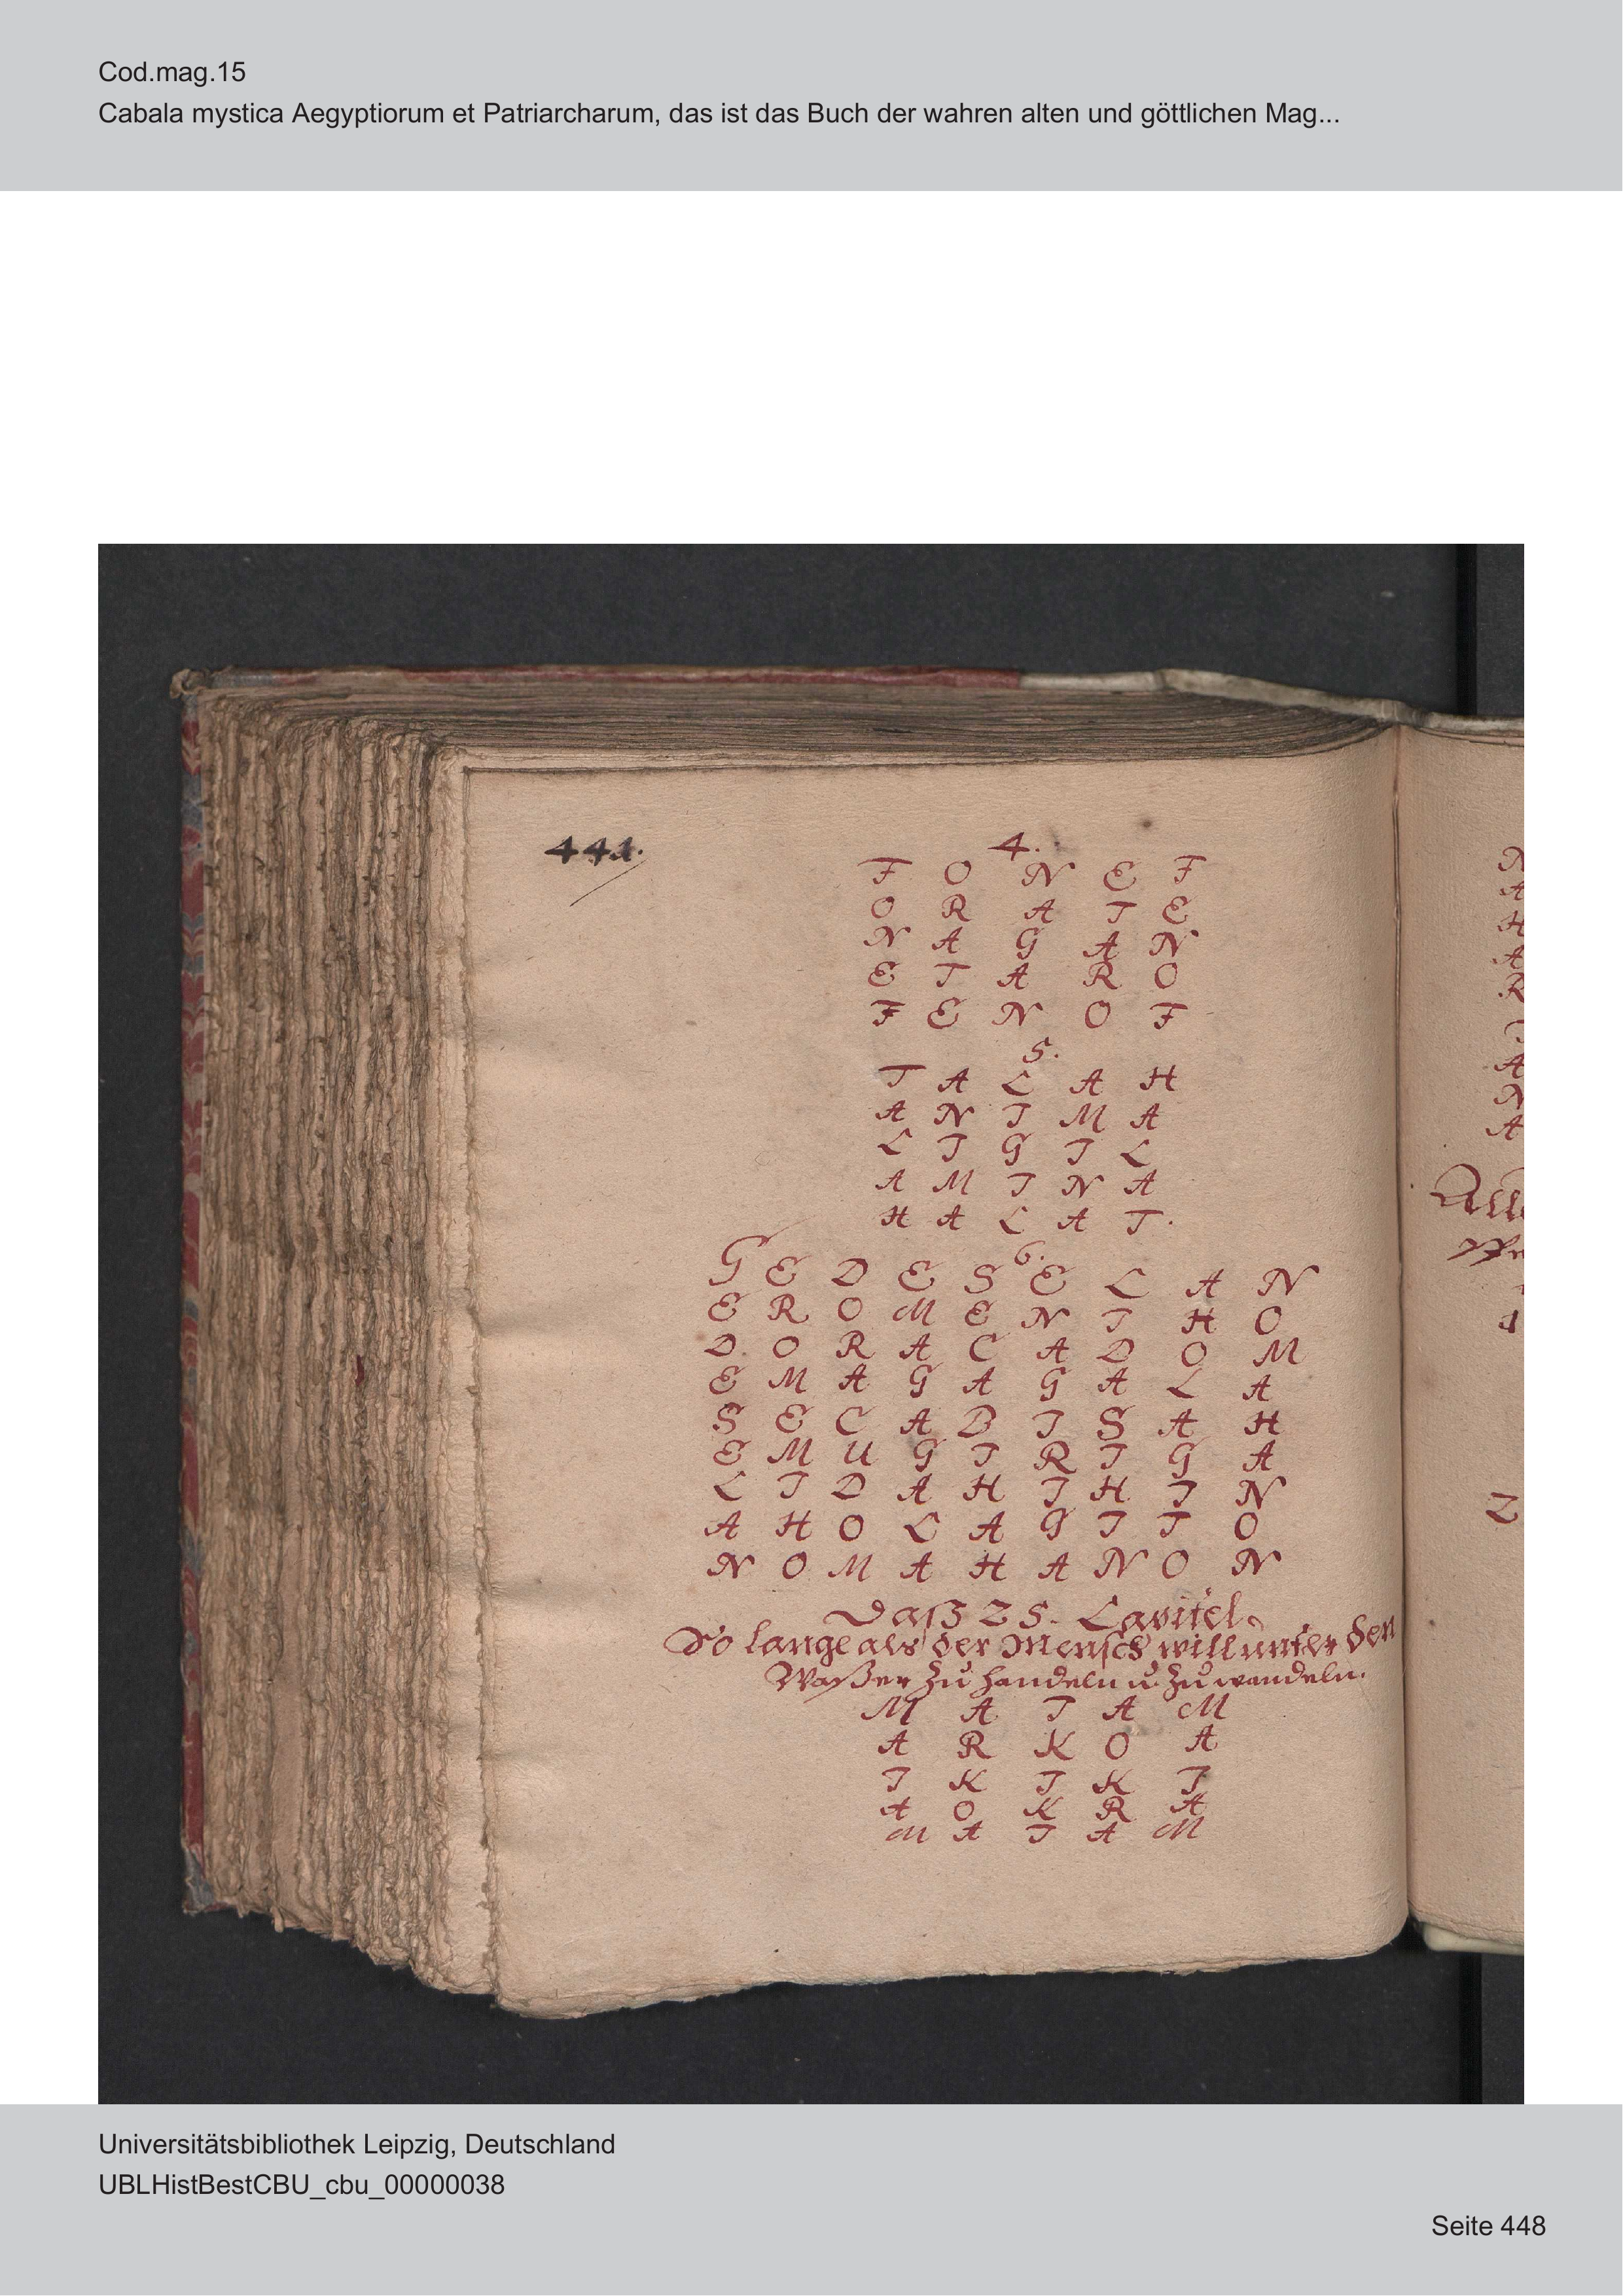 Cod.mag.15
Cabala mystica Aegyptiorum et Patriarcharum, das ist das Buch der wahren alten und göttlichen Mag...
441.
4.
F O N E F
O R A T E
N A G A N
E T A R O
F E N O F
5.
T A L A H
A N I M A
L I G I L
A M I N A
H A L A T.
6.
G E D E S E L A N
E R O M E N I H O
D O R A C A D O M
E M A G A G A L A
S E C A B I S A H
E M U G I R I G A
L I D A H I H I N
A H O L A G I T O
N O M A H A N O N
Daß 25. Capitel.
So lange als der Mensch will unter den
Waßer zu handeln u. zu wandeln.
M A I A M
A R K O A
I K I K I
A O K R A
M A I A M
N
A
H
A
R
A
N
A
2
Universitätsbibliothek Leipzig, Deutschland
UBLHistBestCBU_cbu_00000038
Seite 448